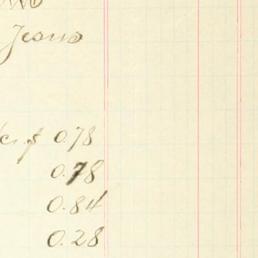 Jeans
0.78
0.78
0.84
0.28